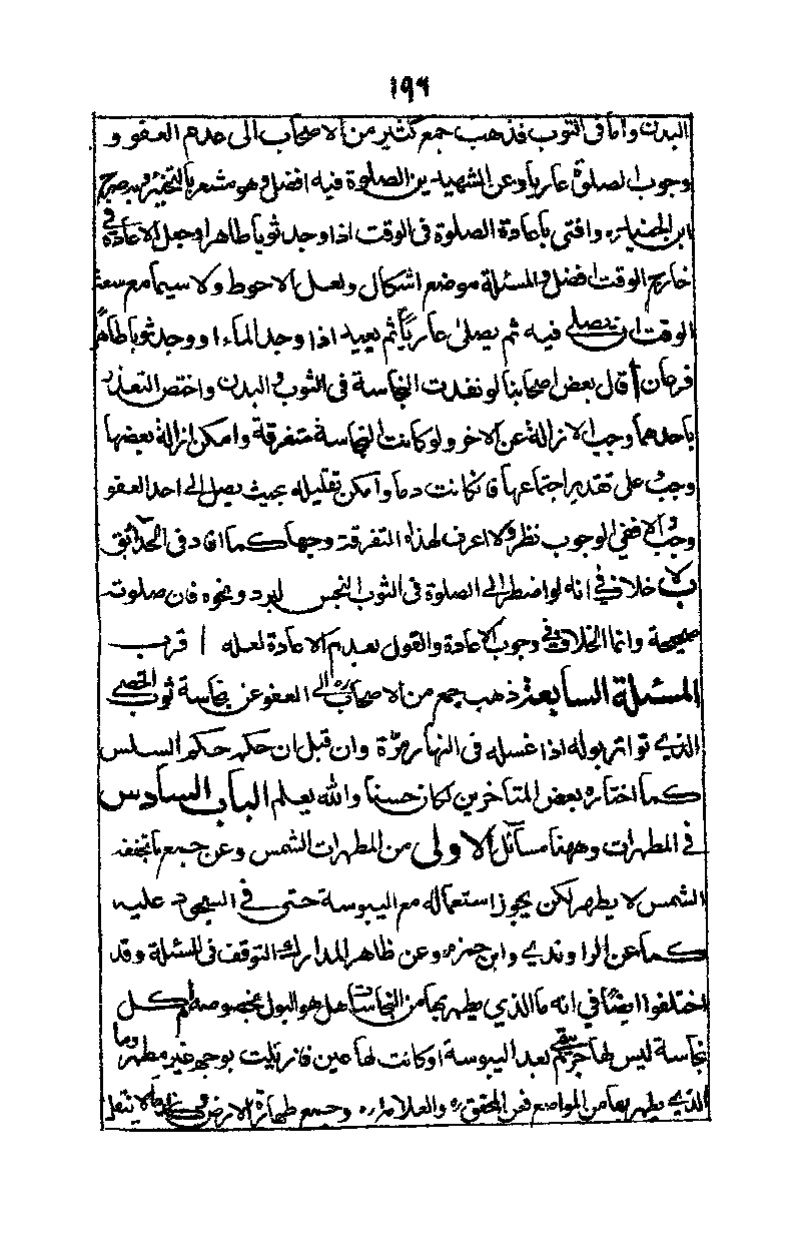 ١٩٦
البدن واما فى الثوب فذهب جمع كثير من الاصحاب الى عدم العفو و
وجوب الصلوة عاريا وعن الشهيدين الصلوة فيه افضل وهو مشعر بالتخيير وبه صرح
ابن الجنيد ره وافتى باعادة الصلوة فى الوقت اذا وجد ثوبا طاهرا وجعل الاعادة فى
خارج الوقت افضل والمسئلة موضع اشكال ولعل الاحوط ولا سيما مع سعة
الوقت ان يصلى فيه ثم يصلى عاريا ثم يعيد اذا وجد الماء او وجد ثوبا طاهرا
فرعان ا قال بعض اصحابنا لو نفدت النجاسة فى الثوب والبدن واختص التعذر
باحدهما وجب الازالة عن الاخر ولو كانت النجاسة متفرقة وامكن ازالة بعضها
وجب على تقدير اجتماعها فان كانت دما وامكن تقليله بحيث يصل الى احد العفو
وجب والا ففى الوجوب نظر ولا اعرف لهذه التفرقة وجها كما افاد فى الحدائق
ب لا خلاف فى انه لو اضطر الى الصلوة فى الثوب النجس لبرد ونحوه فان صلوته
صحيحة وانما الخلاف فى وجوب الاعادة والقول بعدم الاعادة لعله اقرب
المسئلة السابعة ذهب جمع من الاصحاب ره الى العفو عن نجاسة ثوب الخصى
الذى تواتر بوله اذا غسله فى النهار مرة وان قيل ان حكمه حكم السلس
كما اختاره بعض المتاخرين لكان حسنا والله يعلم الباب السادس
فى المطهرات وههنا مسائل الاولى من المطهرات الشمس وعن جمع ما تجففه
الشمس لا يطهر لكن يجوز استعماله مع اليبوسة حتى فى السجود عليه
كما عن الراوندى وابن حمزه وعن ظاهر المدارك التوقف فى المسئلة وقد
اختلفوا ايضا فى انه ما الذى يطهر بها من النجاسات هل هو البول بخصوصه ام كل
نجاسة ليس لها جرم يبقى بعد اليبوسة او كانت لها عين فازيلت بوجه غير مطهر وما
الذى يطهر بها من المواضع فعن المحقق ره والعلامه ره وجمع طهارة الارض لا ينقل